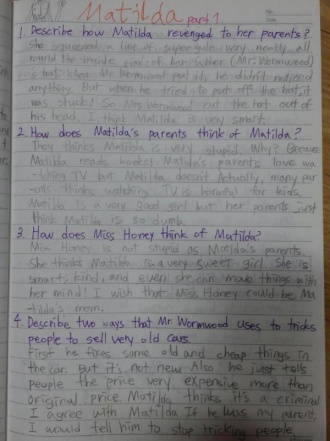 Matilda part 1
1. Describe how Matilda revenged to her parents?
She squeezed a line of super glue very neatly all
round the inside rim of her father (Mr. Wormwood)
's hat. When Mr. Wormwood put it, he didn't noticed
anything. But when he tried to put off the hat, it
was stuck! So Mrs. Wormwood put the hat out of
his head. I think Matilda is very smart.
2. How does Matilda's parents think of Matilda?
They thinks Matilda is very stupid. Why? Because
Matilda reads books. Matilda's parents love wa
-tching TV but Matilda doesn't. Actually, many par
-ents thinks watching TV is harmful for kids.
Matilda is a very good girl but her parents just
think Matilda is so dumb.
3. How does Miss Honey think of Matilda?
Miss Honey is not stupid as Matilda's parents.
She thinks Matilda is a very sweet girl. She is
smart, kind, and even she can move things with
her mind! I wish that Miss Honey could be Ma
-tilda's mom.
4. Describe two ways that Mr. Wormwood uses to tricks
people to sell very old cars.
First he fixes some old and cheap things in
the car. But it's not new. Also he just tells
people the price very expensive more than
original price. Matilda thinks it's a criminal.
I agree with Matilda. If he was my parent,
I would tell him to stop tricking people.